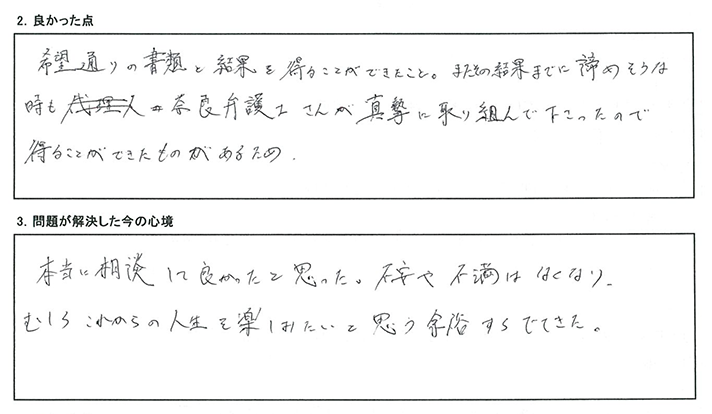 2. 良かった点
希望通りの書類と結果を得ることができたこと。またその結果までに諦めそうな
時も代理人奈良弁護士さんが真摯に取り組んで下さったので
得ることができたものがあるため.
3. 問題が解決した今の心境
本当に相談して良かったと思った。不安や不満はなくなり、
むしろこれからの人生を楽しみたいと思う余裕すらでてきた。